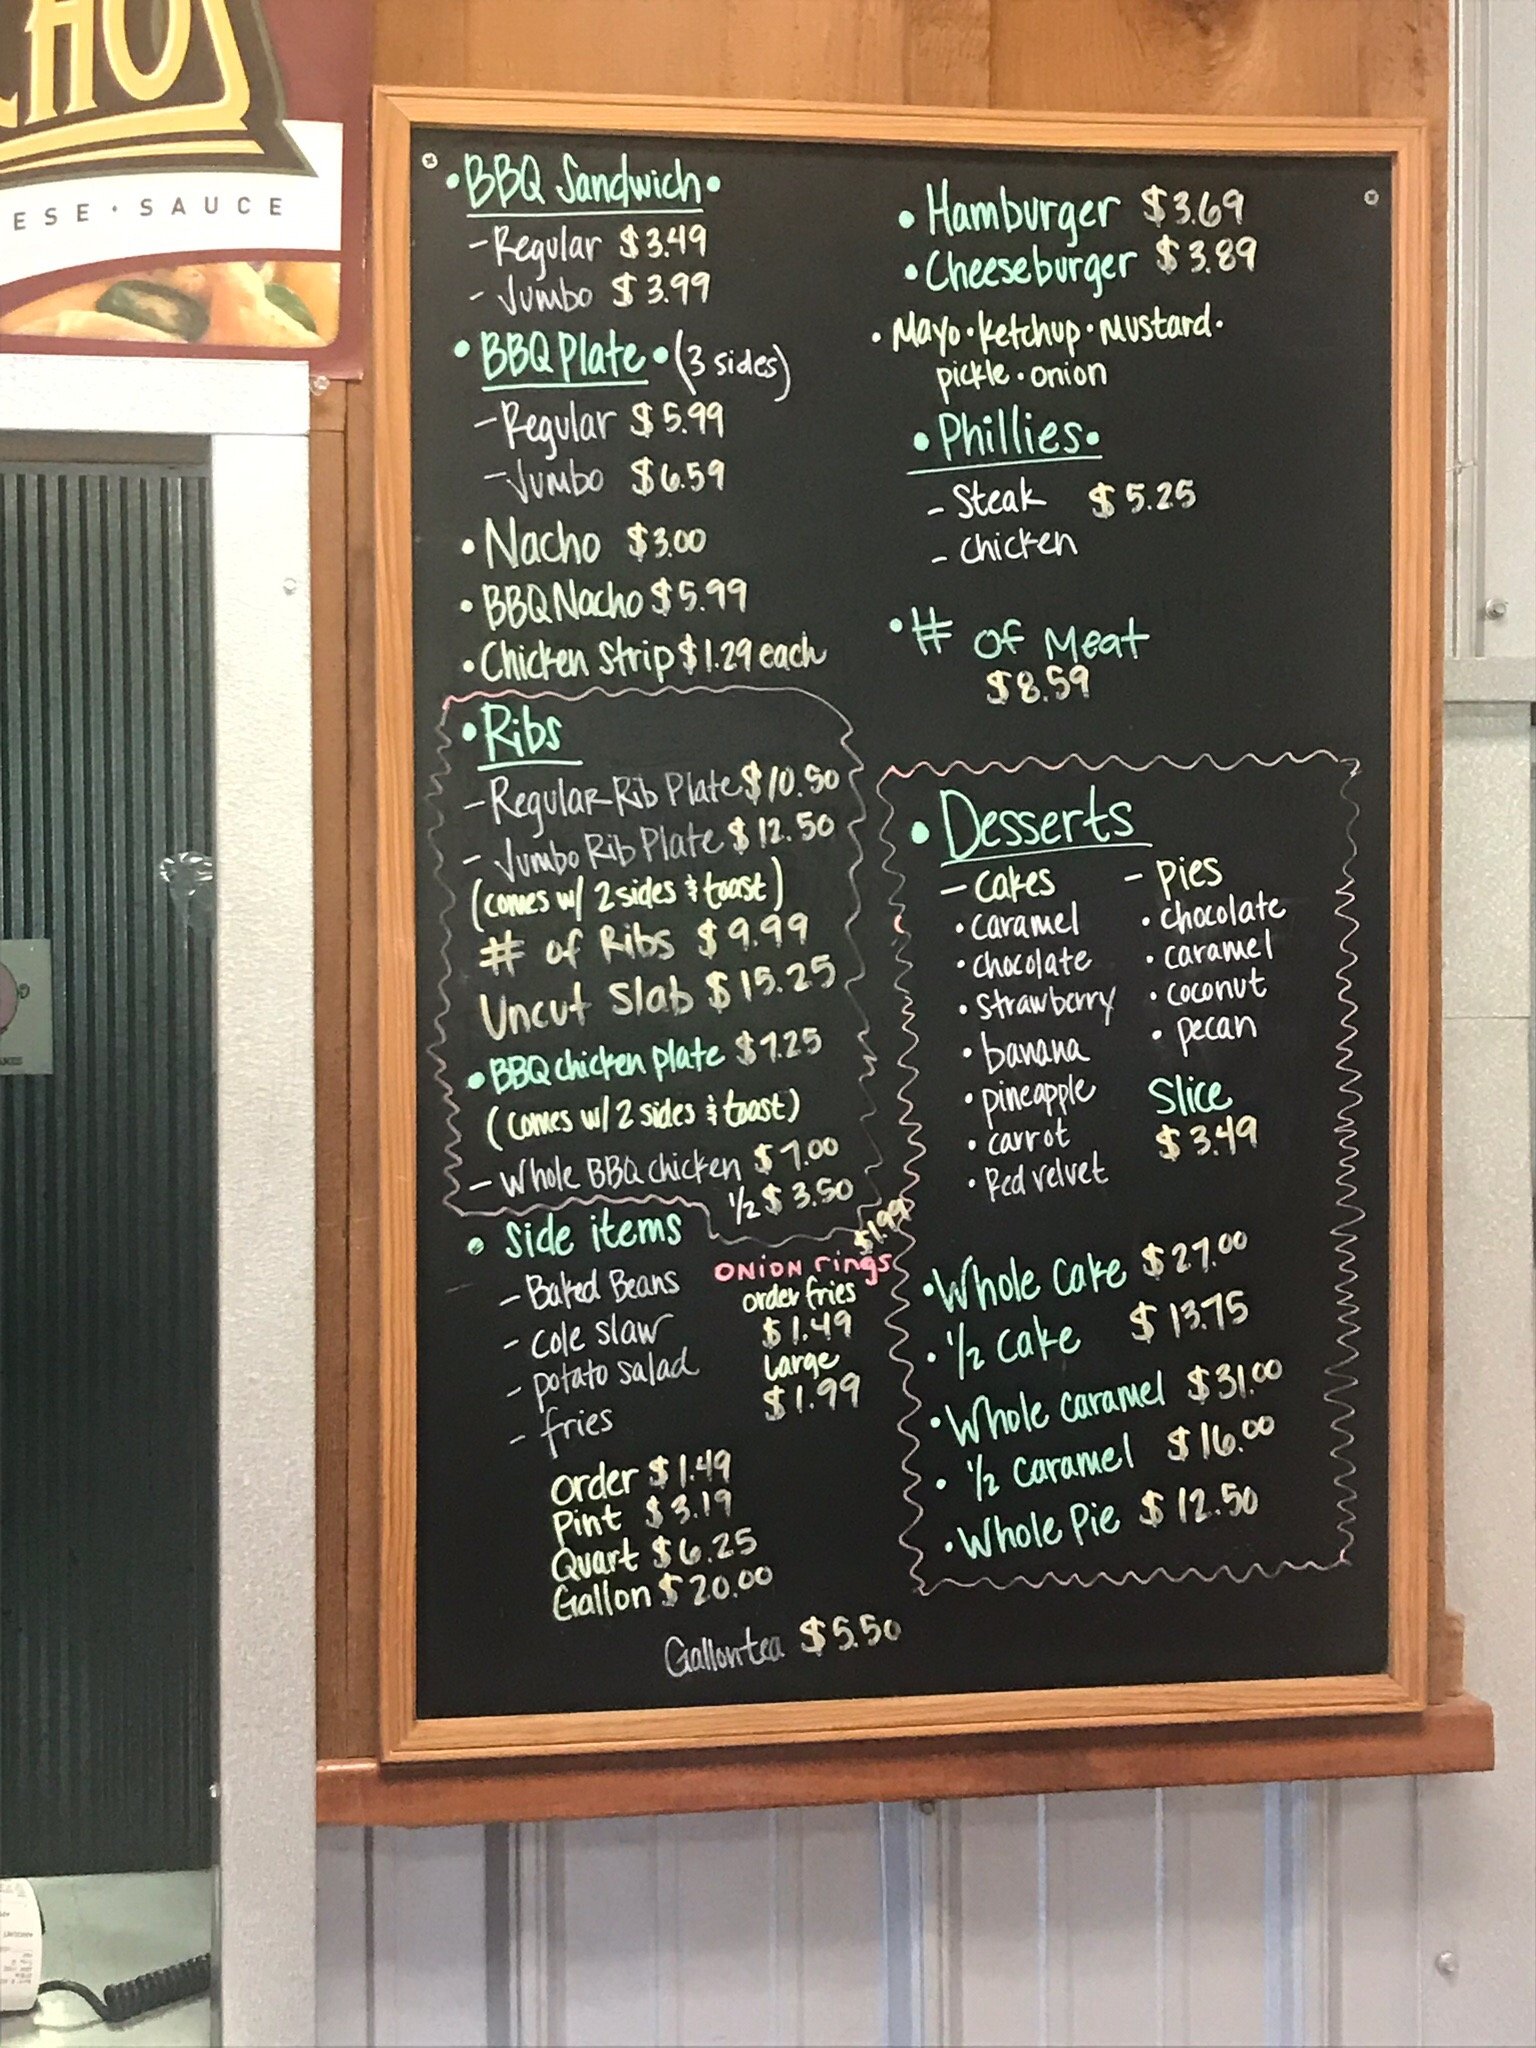 CHO
ESE • SAUCE
• BBQ Sandwich •
- Regular $3.49
- Jumbo $3.99
• BBQ Plate • (3 sides)
- Regular $5.99
- Jumbo $6.59
• Nacho $3.00
• BBQ Nacho $5.99
• Chicken Strip $1.29 each
• Ribs
- Regular Rib Plate $10.50
- Jumbo Rib Plate $12.50
(comes w/ 2 sides & toast)
# of Ribs $9.99
Uncut Slab $15.25
• BBQ chicken plate $7.25
(comes w/ 2 sides & toast)
- Whole BBQ chicken $7.00
1/2 $3.50
• Side items
- Baked Beans
- Cole slaw
- potato salad
- fries
$1.99
Onion rings
order fries
$1.49
Large
$1.99
Order $1.49
Pint $3.19
Quart $6.25
Gallon $20.00
Gallon tea $5.50
• Hamburger $3.69
• Cheeseburger $3.89
• Mayo • Ketchup • Mustard •
pickle • onion
• Phillies •
- Steak $5.25
- Chicken
• # of Meat
$8.59
• Desserts
- Cakes
• caramel
• chocolate
• strawberry
• banana
• pineapple
• carrot
• Red velvet
- Pies
• chocolate
• caramel
• coconut
• pecan
Slice
$3.49
• Whole Cake $27.00
• 1/2 Cake $13.75
• Whole Caramel $31.00
• 1/2 Caramel $16.00
• Whole Pie $12.50